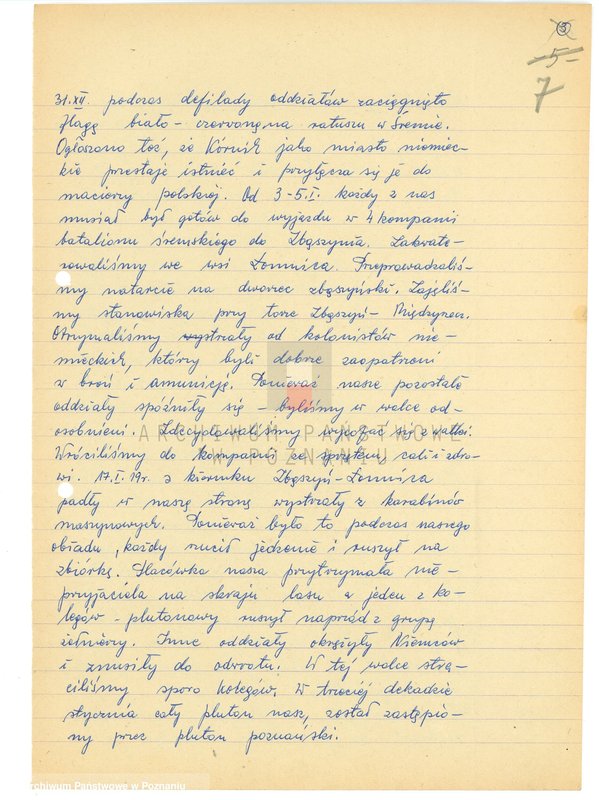 3
-5-
7
31.XII. podczas defilady oddziałów zaciągnięto
flagę biało-czerwoną na ratuszu w Śremie.
Ogłoszono też, że Kórnik jako miasto niemiec-
kie przestaje istnieć i przyłącza się je do
macierzy polskiej. Od 3-5.I. każdy z nas
musiał być gotów do wyjazdu w 4 kompanii
batalionu śremskiego do Zbąszynia. Zakwate-
rowaliśmy we wsi Łomnica. Przeprowadzaliś-
my natarcie na dworzec zbąszyński. Zajęliś-
my stanowiska przy torze Zbąszyń - Międzyrzecz.
Otrzymaliśmy wystrzały od kolonistów nie-
mieckich, którzy byli dobrze zaopatrzeni
w broń i amunicję. Ponieważ nasze pozostałe
oddziały spóźniły się - byliśmy w walce od-
osobnieni. Zdecydowaliśmy wycofać się z walki.
Wróciliśmy do kompanii ze sprzętem cali i zdro-
wi. 17.I.19r. z kierunku Zbąszyń-Łomnica
padły w naszą stronę wystrzały z karabinów
maszynowych. Ponieważ było to podczas naszego
obiadu, każdy rzucił jedzenie i ruszył na
zbiórkę. Placówka nasza przytrzymała nie-
przyjaciela na skraju lasu a jeden z ko-
legów - plutonowy ruszył naprzód z grupą
żołnierzy. Inne oddziały okrążyły Niemców
i zmusiły do odwrotu. W tej walce stra-
ciliśmy sporo kolegów. W trzeciej dekadzie
stycznia cały pluton nasz, został zastąpio-
ny przez pluton poznański.
ARCHIWUM PAŃSTWOWE
W POZNANIU
Archiwum Państwowe w Poznaniu